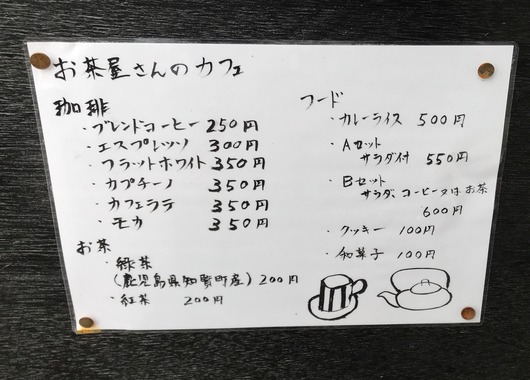 お茶屋さんのカフェ
珈琲
・ブレンドコーヒー 250円
・エスプレッソ 300円
・フラットホワイト 350円
・カプチーノ 350円
・カフェラテ 350円
・モカ 350円
お茶
・緑茶
(鹿児島県知覧町産) 200円
・紅茶 200円
フード
・カレーライス 500円
・Aセット
サラダ付 550円
・Bセット
サラダ、コーヒー又はお茶
600円
・クッキー 100円
・和菓子 100円